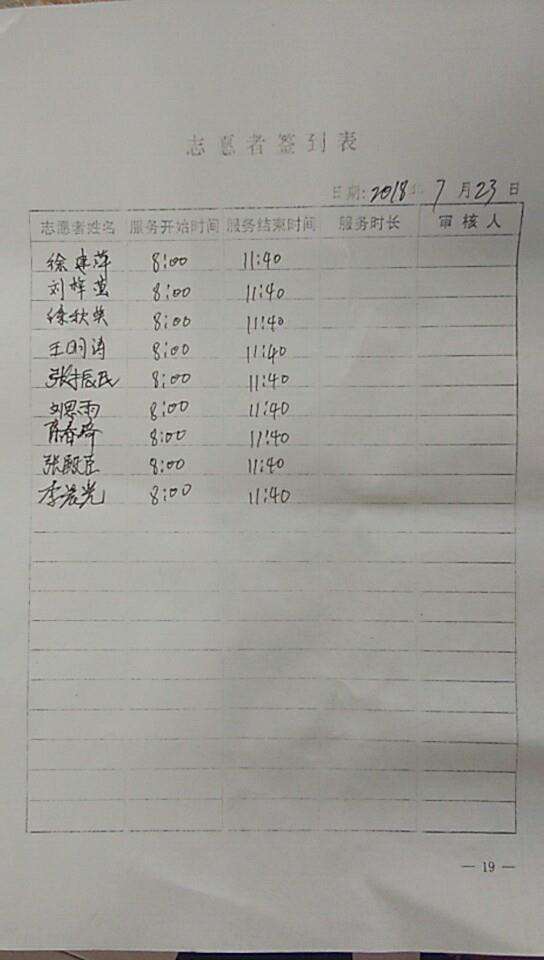 志愿者签到表
日期:2018年 7 月 23 日
志愿者姓名 服务开始时间 服务结束时间 服务时长 审核人
徐建萍 8:00 11:40
刘梓萱 8:00 11:40
徐秋焕 8:00 11:40
王明涛 8:00 11:40
张振民 8:00 11:40
刘思雨 8:00 11:40
陈春琦 8:00 11:40
张殿臣 8:00 11:40
李宏光 8:00 11:40
— 19 —